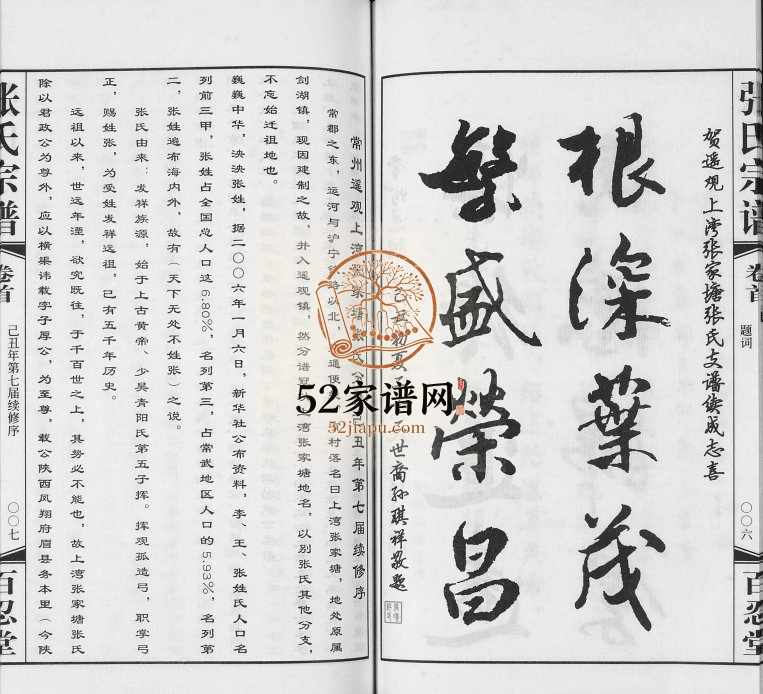 张氏宗谱
卷首
题词
〇〇六
百忍堂
贺遥观上湾张家塘张氏支谱续成志喜
根深葉茂
繁盛荣昌
己丑初夏
世裔孙琪祥敬题
常州遥观上湾
己丑年第七届续修序
常郡之东，运河与沪宁
路以北，
村落名曰上湾张家塘，地处原属
剑湖镇，现因建制之故，并入遥观镇，然分谱
湾张家塘地名，以别张氏其他分支，
不忘始迁祖地也。
巍巍中华，泱泱张姓，据二〇〇六年一月六日，新华社公布资料，李、王、张姓氏人口名
列前三甲，张姓占全国总人口这6.80%，名列第三，占常武地区人口的5.93%，名列第
二，张姓遍布海内外，故有（天下无处不姓张）之说。
张氏由来：发祥族源，始于上古黄帝、少昊青阳氏第五子挥。挥观弧造弓，职掌弓
正，赐姓张，为受姓发祥远祖，已有五千年历史。
远祖以来，世远年湮，欲究既往，于千百世之上，其势必不能也，故上湾张家塘张氏
除以君政公为尊外，应以横渠讳载字子厚公，为至尊，载公陕西凤翔府眉县务本里（今陕
张氏宗谱
卷首
己丑年第七届续修序
〇〇七
百忍堂
52家谱网
52jiapu.com